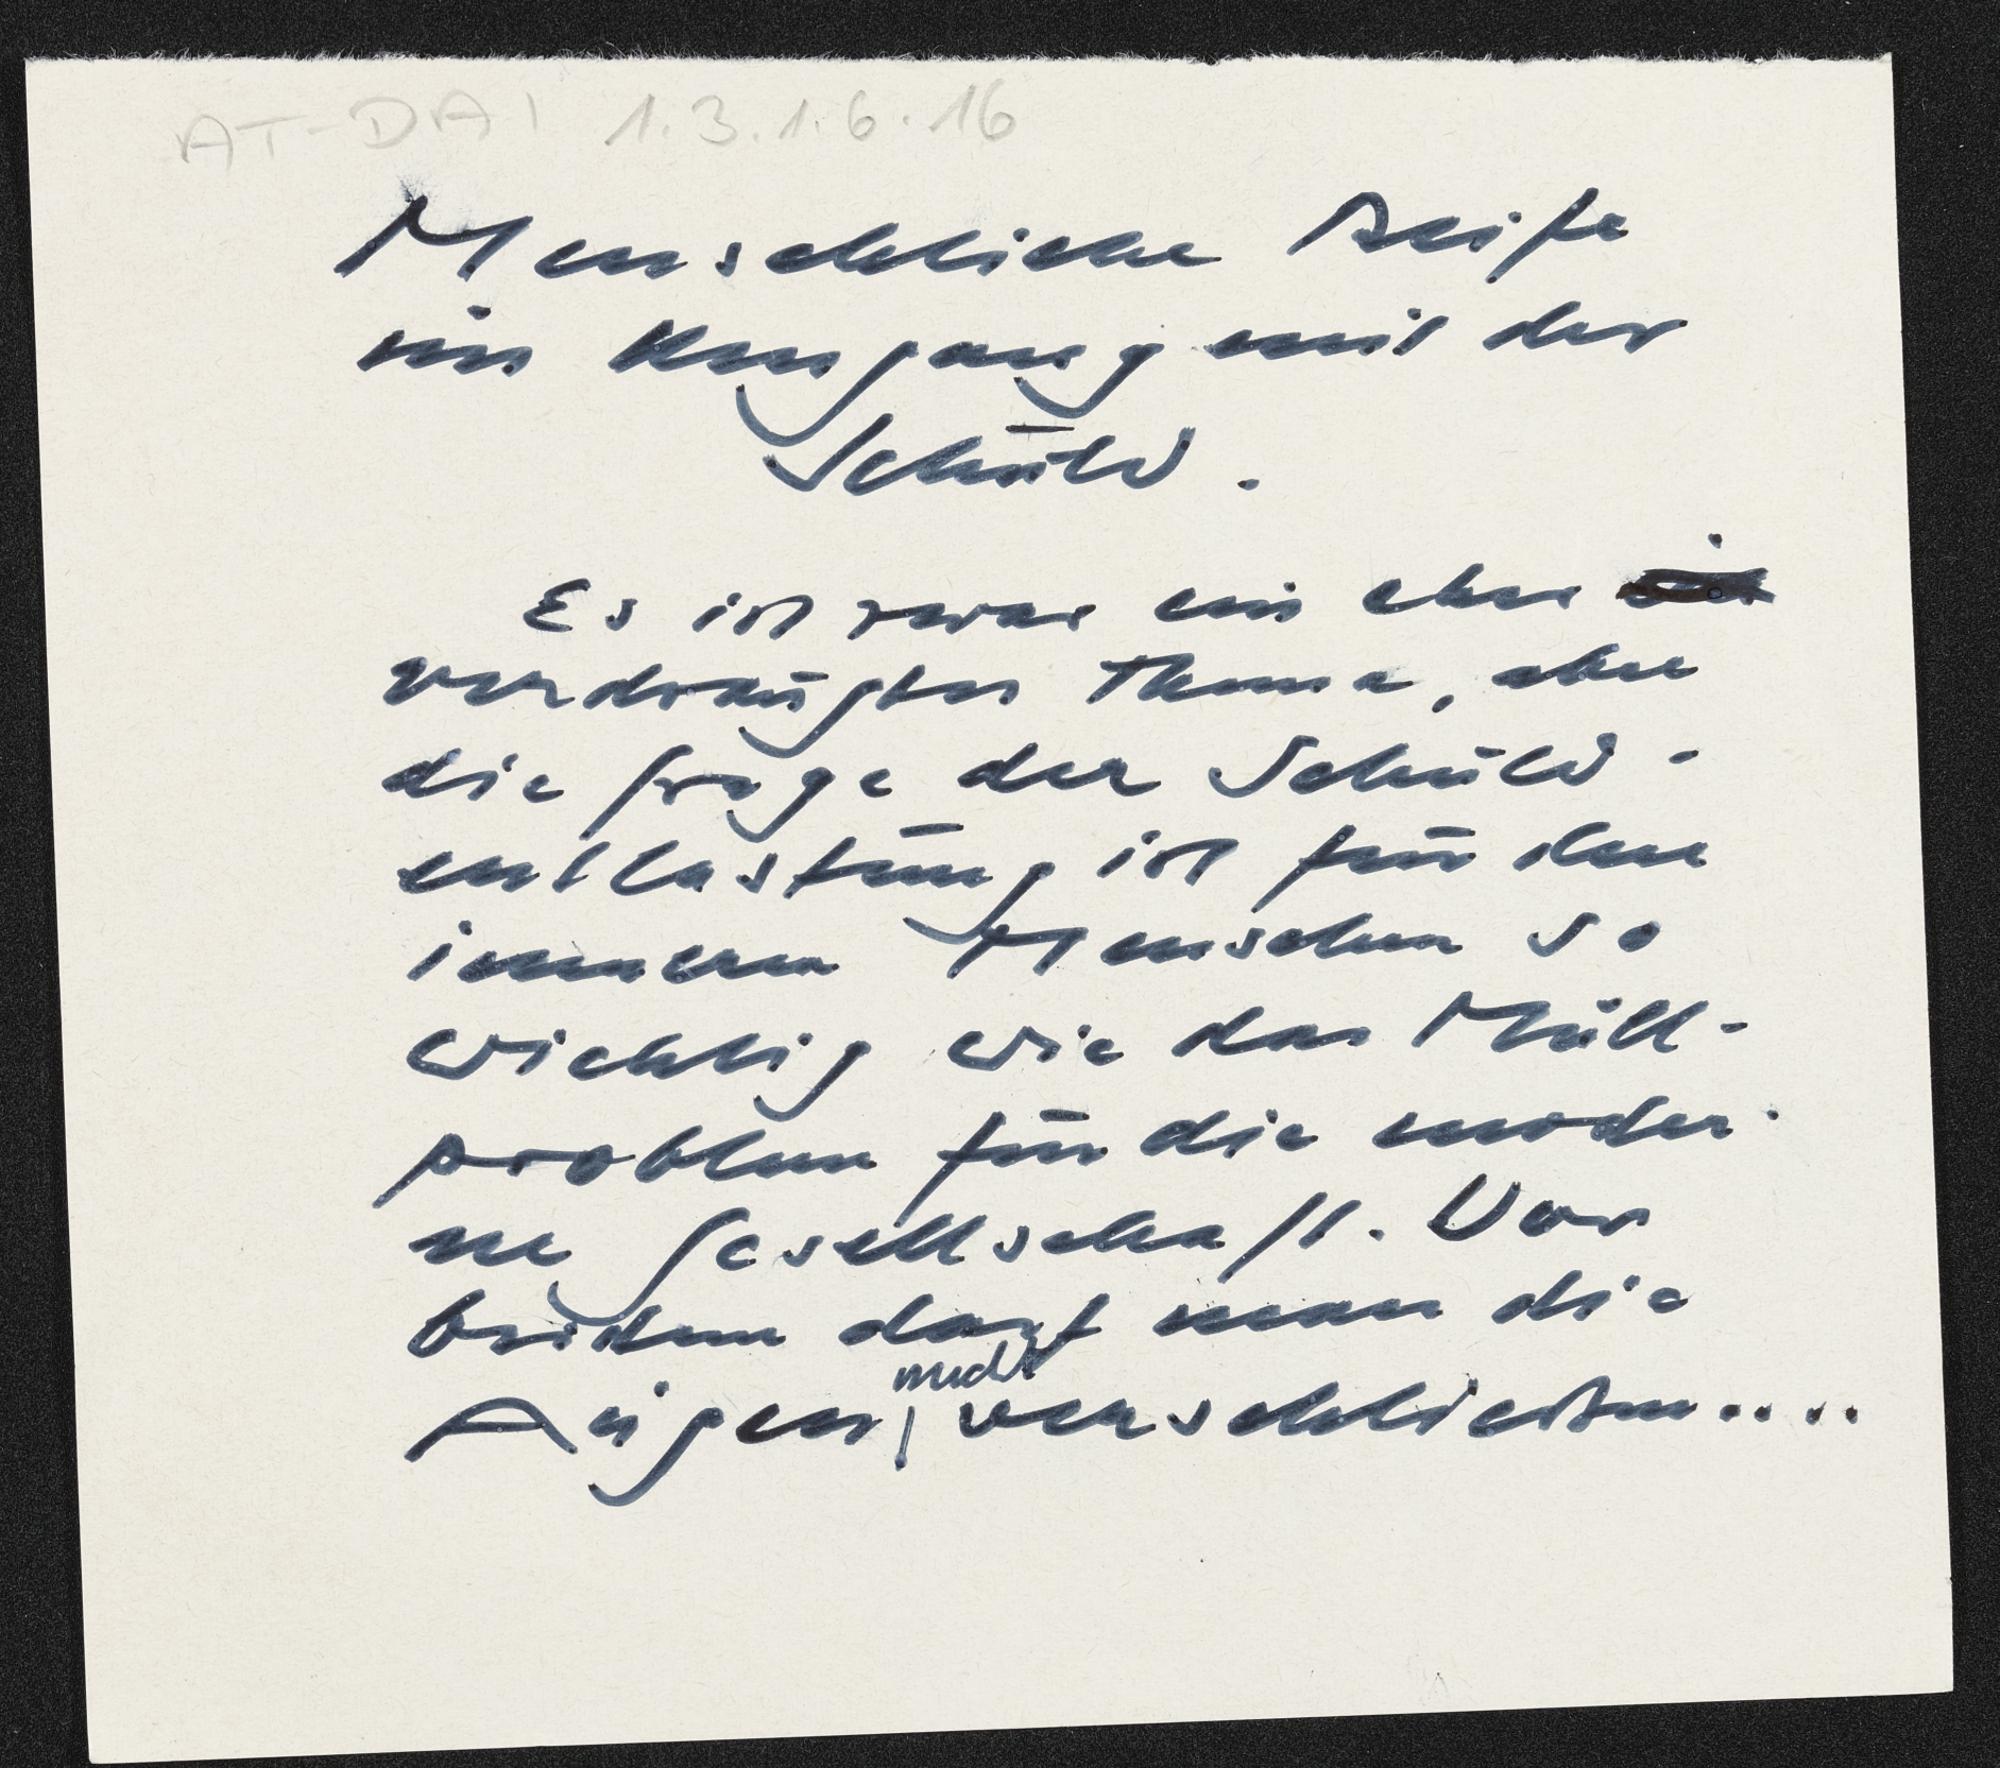 AT-DAI 1.3.1.6.16
Menschliche Reife
im Umgang mit der
Schuld.
Es ist zwar ein eher
verdrängtes Thema, aber
die Frage der Schuld-
entlastung ist für den
inneren Menschen so
wichtig wie das Müll-
problem für die moder-
ne Gesellschaft. Vor
beiden darf man die
nicht
Augen verschließen....